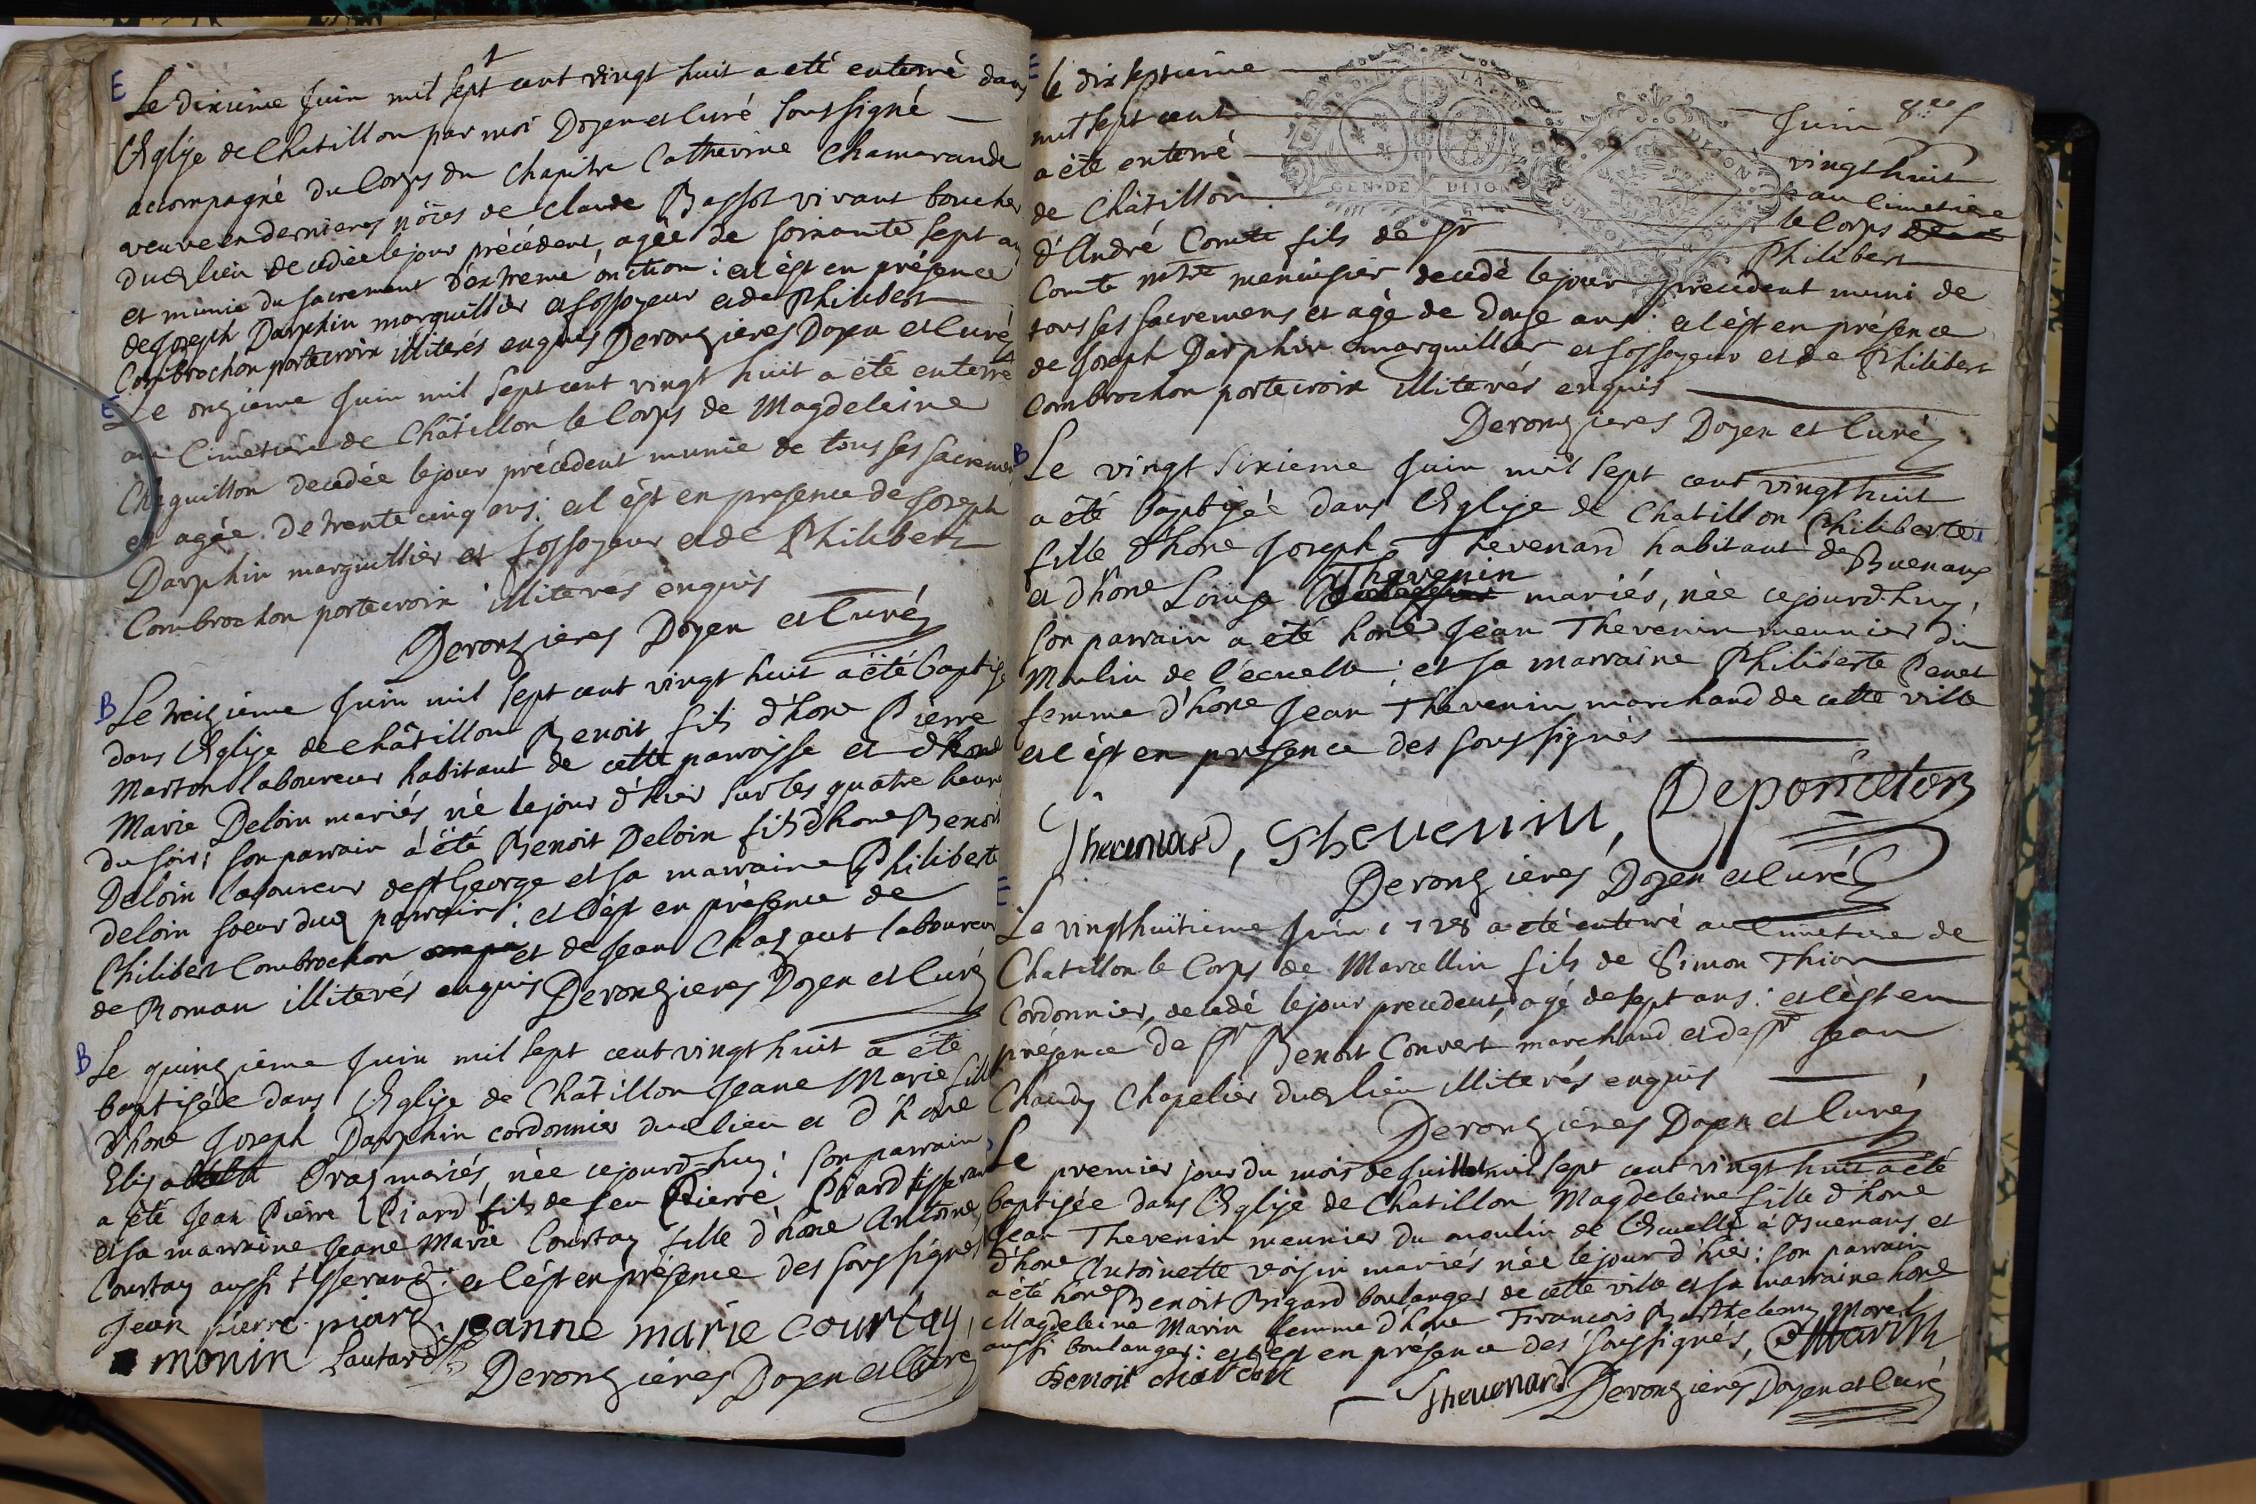 E
Le dixieme Juin mil sept cent vingt huit a eté enterré dans
l'Eglise de Chatillon par moi Doyen et Curé soussigné
accompagné du Corps du Chapitre Catherine Chamarande
veuve en dernieres nôces de Claude Bassot vivant boucher
dud lieu decedée le jour précédent, agée de soixante sept an
et munie du sacrement d'extreme onction : et c'est en présence
de Joseph Darphin marguillier et fossoyeur et de Philibert
Combrochon portecroix illiterés enquis Deronzieres Doyen et Curé
E
Le onzieme Juin mil sept cent vingt huit a été enterré
au Cimetiere de Châtillon le Corps de Magdeleine
Chiguillon decedée le jour précedent munie de tous ses sacremens
et agée de trente cinq ans : et c'est en presence de Joseph
Darphin marguillier et fossoyeur et de Philibert
Combrochon portecroix illiterés enquis
Deronzieres Doyen et Curé
B
Le treizième Juin mil sept cent vingt huit a été baptisé
dans l'Eglise de châtillon Benoit fils d'hone Pierre
Marton laboureur habitant de cette parroisse et d'hone
Marie Deloin mariés né le jour d'hier sur les quatre heures
du soir ; son parrain a été Benoit Deloin fils d'hone Benoit
Deloin laboureur de St George et sa marraine Philiberte
deloin soeur dud parrain : et c'est en présence de
Philibert Combrochon et de Jean Chazaut laboureur
de Roman illiterés enquis Deronzieres Doyen et Curé
B
Le quinzième Juin mil sept cent vingt huit a été
baptisée dans l'Eglise de Châtillon Jeane Marie fille
d'hone Joseph Darphin cordonnier dud lieu et d'hone
Elizabeth Oraz mariés, née cejourd'huy ; son parrain
a été Jean Pierre Piard fils de feu Pierre Piard tisserand
et sa marraine Jeane Marie Courtay fille d'hone Antoine
Courtay aussi tisserand : et c'est en présence des soussignés
Jean pierre piard. jeanne marie courtay
monin Lautard
Deronzieres Doyen et Curé
E
le dix septieme Juin 8
mil sept cent vingt huit
a été enterré au Cimetiere
de Châtillon le Corps
d'André Comte fils de Sr Philibert
GEN·DE DIJON
DIJON
Comte mtre menuisier decedé le jour précedent muni de
tous ses sacremens et agé de douze ans : et c'est en présence
de Joseph Darphin marguillier et fossoyeur et de Philibert
Combrochon portecroix illiterés enquis
Deronzieres Doyen et Curé
B
Le vingt sixieme Juin mil sept cent vingt huit
a été baptisée dans l'Eglise de Chatillon Philiberte
fille d'hone Joseph Thevenard habitant de Buenans
et d'hone Louise Thevenin mariés, née cejourd'huy,
son parrain a été hone Jean Thevenin meunier du
Moulin de l'écuelle ; et sa marraine Philiberte Penet
femme d'hone Jean Thevenin marchand de cette ville
et c'est en presence des soussignés
Thevenard, Thevenin, Deponcelton
Deronzieres Doyen et Curé
E
Le vingthuitieme Juin 1728 a eté enterré au Cimetiere de
Chatillon le Corps de Marcellin fils de Simon Thion
Cordonnier, decedé le jour precedent, agé de sept ans : et c'est en
présence de Sr Benoit Convert marchand et de Sr Jean
Chaudy Chapelier dud lieu illiterés enquis
Deronzieres Doyen et Curé
Le premier jour du mois de Juillet mil sept cent vingt huit a été
baptisée dans l'Eglise de Chatillon Magdeleine fille d'hone
Jean Thevenin meunier du moulin de l'Ecuelle à Buenans et
d'hone Antoinette voisin mariés née le jour d'hier : son parrain
a été hone Benoit Brigard boulanger de cette ville et sa marraine hone
Magdeleine Marin femme d'hone François Barthelemy Morel
aussi boulanger : et c'est en présence des soussignés, Marin
Benoit
Thevenard Deronzieres Doyen et Curé